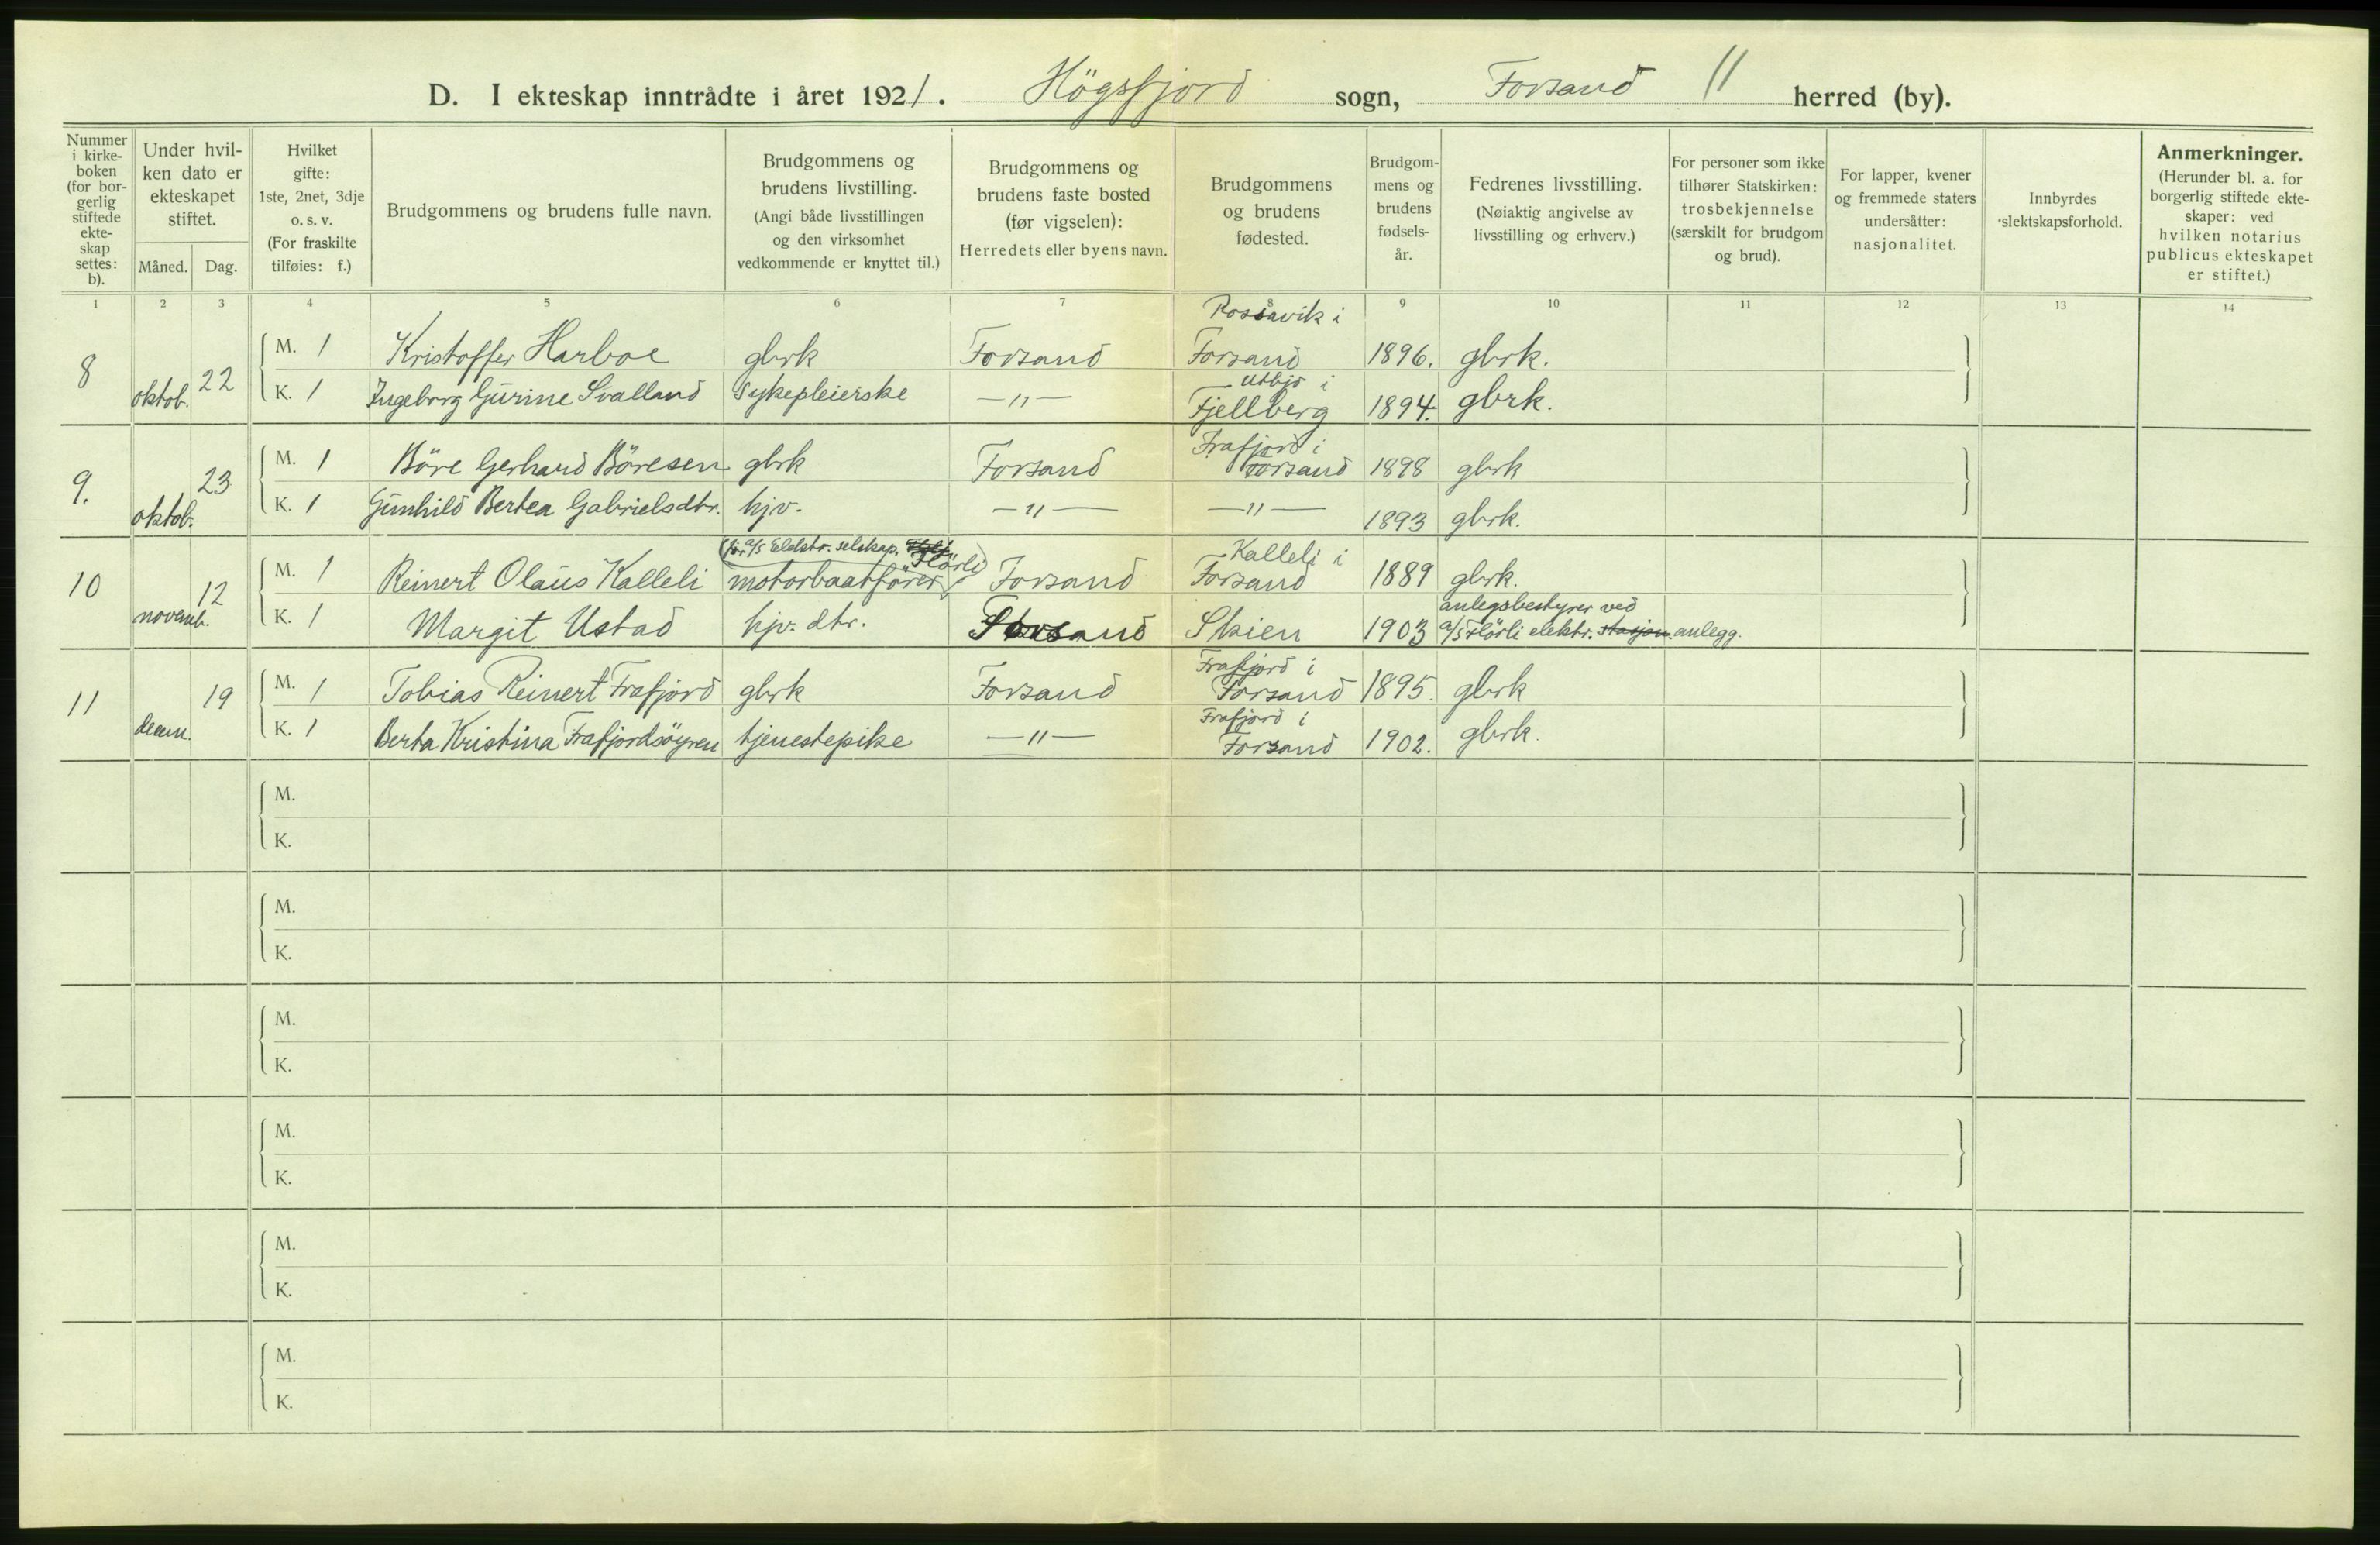 D. I ekteskap inntrådte i året 1921. Högsfjord sogn, Forsand 11 herred (by).
Nummer i kirke-boken (for bor-gerlig stiftede ekte-skap settes: b).
Under hvil-ken dato er ekteskapet stiftet.
Måned. Dag.
Hvilket gifte: 1ste, 2net, 3dje o. s. v. (For fraskilte tilføies: f.)
Brudgommens og brudens fulle navn.
Brudgommens og brudens livstilling. (Angi både livsstillingen og den virksomhet vedkommende er knyttet til.)
Brudgommens og brudens faste bosted (før vigselen): Herredets eller byens navn.
Brudgommens og brudens fødested.
Brudgom-mens og brudens fødsels-år.
Fedrenes livsstilling. (Nøiaktig angivelse av livsstilling og erhverv.)
For personer som ikke tilhører Statskirken: trosbekjennelse (særskilt for brudgom og brud).
For lapper, kvener og fremmede staters undersåtter: nasjonalitet.
Innbyrdes slektskapsforhold.
Anmerkninger. (Herunder bl. a. for borgerlig stiftede ekte-skaper: ved hvilken notarius publicus ekteskapet er stiftet.)
1 2 3 4 5 6 7 8 9 10 11 12 13 14
Rossavik i
8 oktob. 22 M. 1 Kristoffer Harboe gbrk Forsand Forsand 1896. gbrk.
Utbjo i
K. 1 Ingeborg Gurine Svalland Sykepleierske —"— Fjellberg 1894. gbrk.
Frafjord i
9. oktob. 23 M. 1 Böre Gerhard Böresen gbrk Forsand Forsand 1898 gbrk
K. 1 Gunhild Bertea Gabrielsdtr. hjv. —"— —"— 1893 gbrk.
(for a/s Elektr. selskap. Flörli) Kalleli i
10 novemb. 12 M. 1 Reinert Olaus Kalleli motorbaatförer Forsand Forsand 1889 gbrk.
anlegsbestyrer ved
K. 1 Margit Ustad hjv. dtr. Forsand Skien 1903 a/s Flörli elektr. stasjon. anlegg.
Frafjord i
11 decem. 19 M. 1 Tobias Reinert Frafjord gbrk Forsand Forsand 1895. gbrk
Frafjord i
K. 1 Berta Kristina Frafjordsöyren tjenestepike —"— Forsand 1902. gbrk.
M.
K.
M.
K.
M.
K.
M.
K.
M.
K.
M.
K.